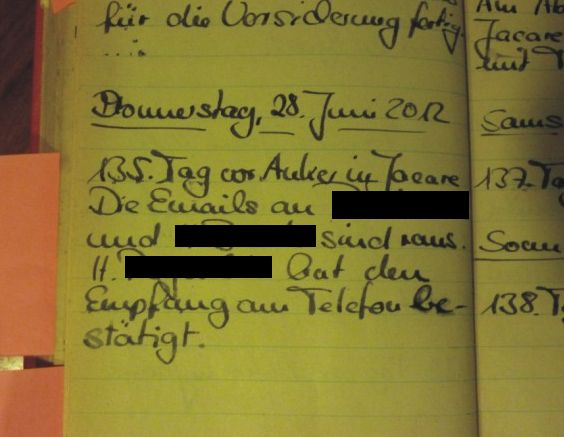 für die Versicherung fertig.
....
Donnerstag, 28. Juni 2012
135. Tag vor Anker in Jacare
Die Emails an
und sind raus.
H. hat den
Empfang am Telefon be-
stätigt.
Am Ab
Jacare
und T
Sams
137. Tag
Sonn
138. T